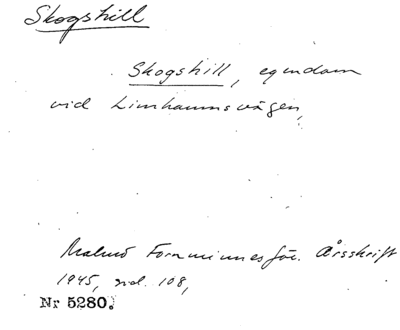 Skogshill
Skogshill, egendom
vid Limhamnsvägen,
Malmö Fornminnesför. Årsskrift
1945, sid. 108,
Nr 5280.